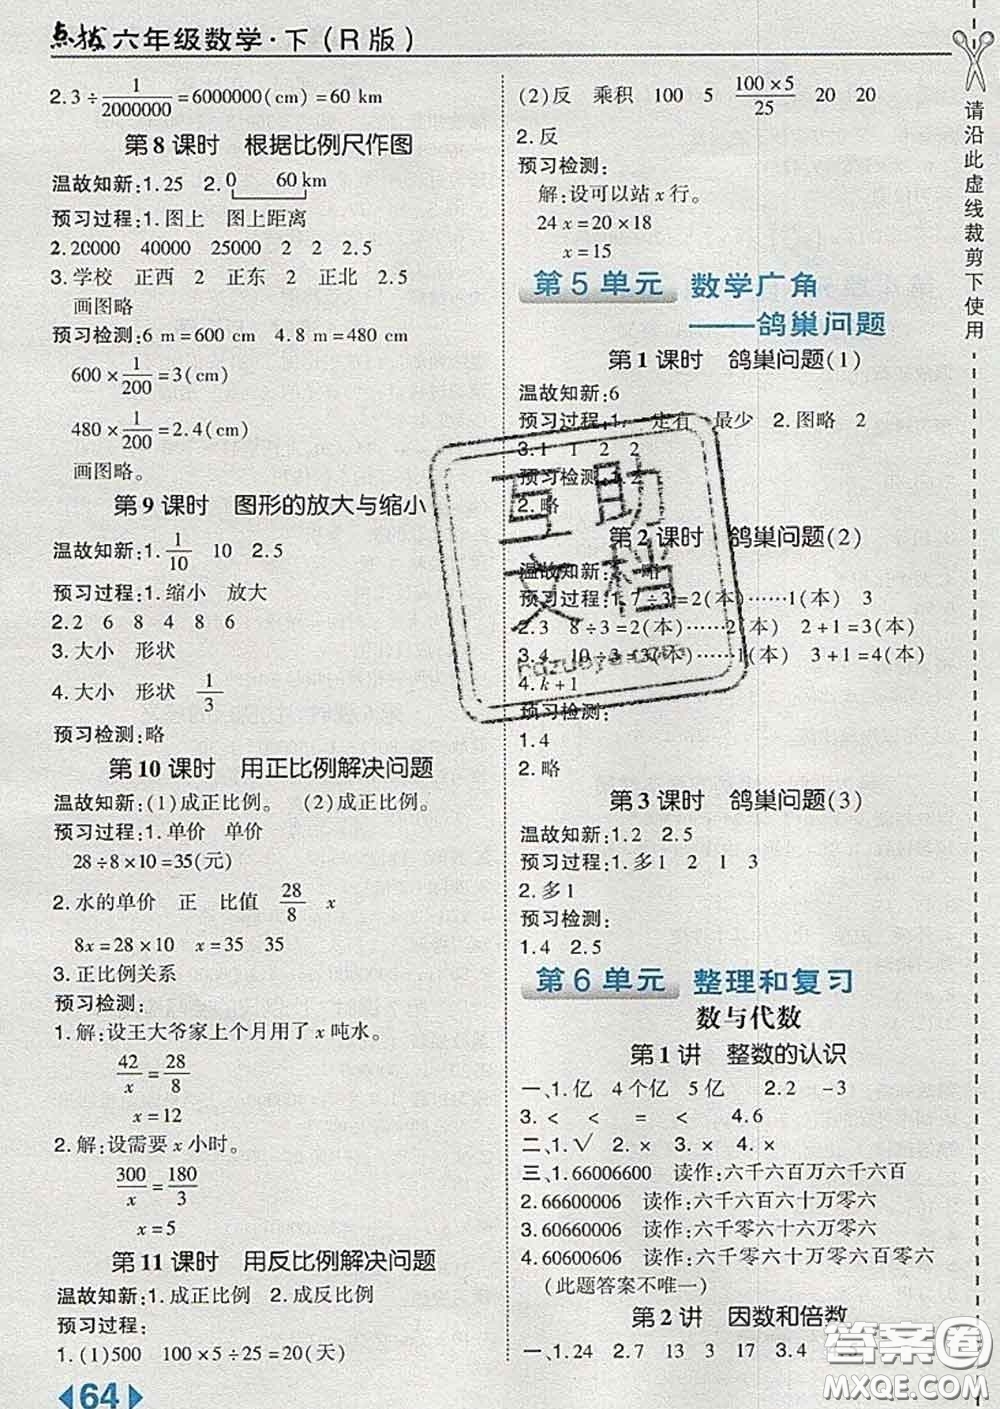 点拨 六年级数学·下（R版）
2.3÷1/2000000=6000000(cm)=60 km
第8课时 根据比例尺作图
温故知新:1.25 2.0 60 km
预习过程:1.图上 图上距离
2.20000 40000 25000 2 2 2.5
3.学校 正西 2 正东 2 正北 2.5
画图略
预习检测:6 m=600 cm 4.8 m=480 cm
600×1/200=3(cm)
480×1/200=2.4(cm)
画图略。
第9课时 图形的放大与缩小
温故知新:1.1/10 10 2.5
预习过程:1.缩小 放大
2.2 6 8 4 8 6
3.大小 形状
4.大小 形状 1/3
预习检测:略
第10课时 用正比例解决问题
温故知新:(1)成正比例。 (2)成正比例。
预习过程:1.单价 单价
28÷8×10=35(元)
2.水的单价 正 比值 28/8 x
8x=28×10 x=35 35
3.正比例关系
预习检测:
1.解:设王大爷家上个月用了x吨水。
42/x=28/8
x=12
2.解:设需要x小时。
300/x=180/3
x=5
第11课时 用反比例解决问题
温故知新:1.成正比例 2.成反比例
预习过程:
1.(1)500 100×5÷25=20(天)
64
(2)反 乘积 100 5 100×5/25 20 20
2.反
预习检测:
解:设可以站x行。
24x=20×18
x=15
第5单元 数学广角
——鸽巢问题
第1课时 鸽巢问题(1)
温故知新:6
预习过程:1. 一定有 最少 2.图略 2
3.1 1 2 2
预习检测:1.2
2.略
第2课时 鸽巢问题(2)
温故知新: 略
预习过程:1.7÷3=2(本)……1(本) 3
2.3 8÷3=2(本)……2(本) 2+1=3(本)
3.4 10÷3=3(本)……1(本) 3+1=4(本)
4.k+1
预习检测:
1.4
2.略
第3课时 鸽巢问题(3)
温故知新:1.2 2.5
预习过程:1.多1 2 1 3
2.多1
预习检测:
1.4 2.5
第6单元 整理和复习
数与代数
第1讲 整数的认识
一、1.亿 4个亿 5亿 2.2 -3
3.< < = < 4.6
二、1.√ 2.× 3.× 4.×
三、1.66006600 读作:六千六百万六千六百
2.66600006 读作:六千六百六十万零六
3.60660006 读作:六千零六十六万零六
4.60600606 读作:六千零六十万零六百零六
(此题答案不唯一)
第2讲 因数和倍数
一、1.24 2.7 3.4
请沿此虚线裁剪下使用
互助
文档
答案圈
MXQE.COM